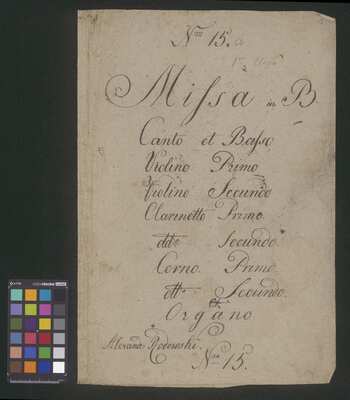 Nro 15.a
Missa in B
Canto et Basso
Violino Primo
Violino Secundo
Clarinetto Primo
dtto Secundo.
Corno Primo
dtto Secundo.
Et
Organo
Nro 15.